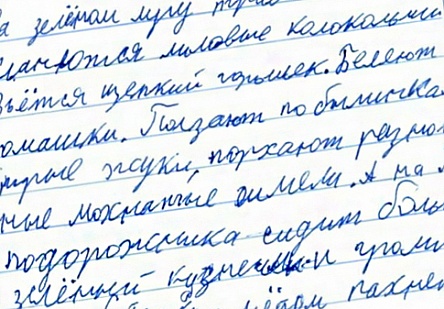 а зелёном лугу
лиловые колокольчи
вьётся цепкий горошек. Белеют
омашки. Ползают по былинка
жуки, порхают разно
ные мохнатые шмели. А на л
подорожника сидит боль
зелёный кузнечик и громк
пахнет